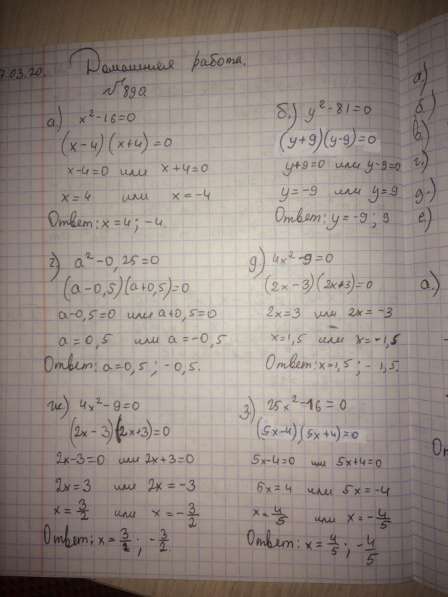 7.03.20.
Домашняя работа.
№890
а) x²-16=0
(x-4)(x+4)=0
x-4=0 или x+4=0
x=4 или x=-4
Ответ: x=4; -4.
б.) y²-81=0
(y+9)(y-9)=0
y+9=0 или y-9=0
y=-9 или y=9
Ответ: y=-9; 9
г) a²-0,25=0
(a-0,5)(a+0,5)=0
a-0,5=0 или a+0,5=0
a=0,5 или a=-0,5
Ответ: a=0,5; -0,5.
д) 4x²-9=0
(2x-3)(2x+3)=0
2x=3 или 2x=-3
x=1,5 или x=-1,5
Ответ: x=1,5; -1,5.
ж) 4x²-9=0
(2x-3)(2x+3)=0
2x-3=0 или 2x+3=0
2x=3 или 2x=-3
x=3/2 или x=-3/2
Ответ: x=3/2; -3/2.
з) 25x²-16=0
(5x-4)(5x+4)=0
5x-4=0 или 5x+4=0
5x=4 или 5x=-4
x=4/5 или x=-4/5
Ответ: x=4/5; -4/5
а)
б)
в)
г.)
д.)
е)
а.)